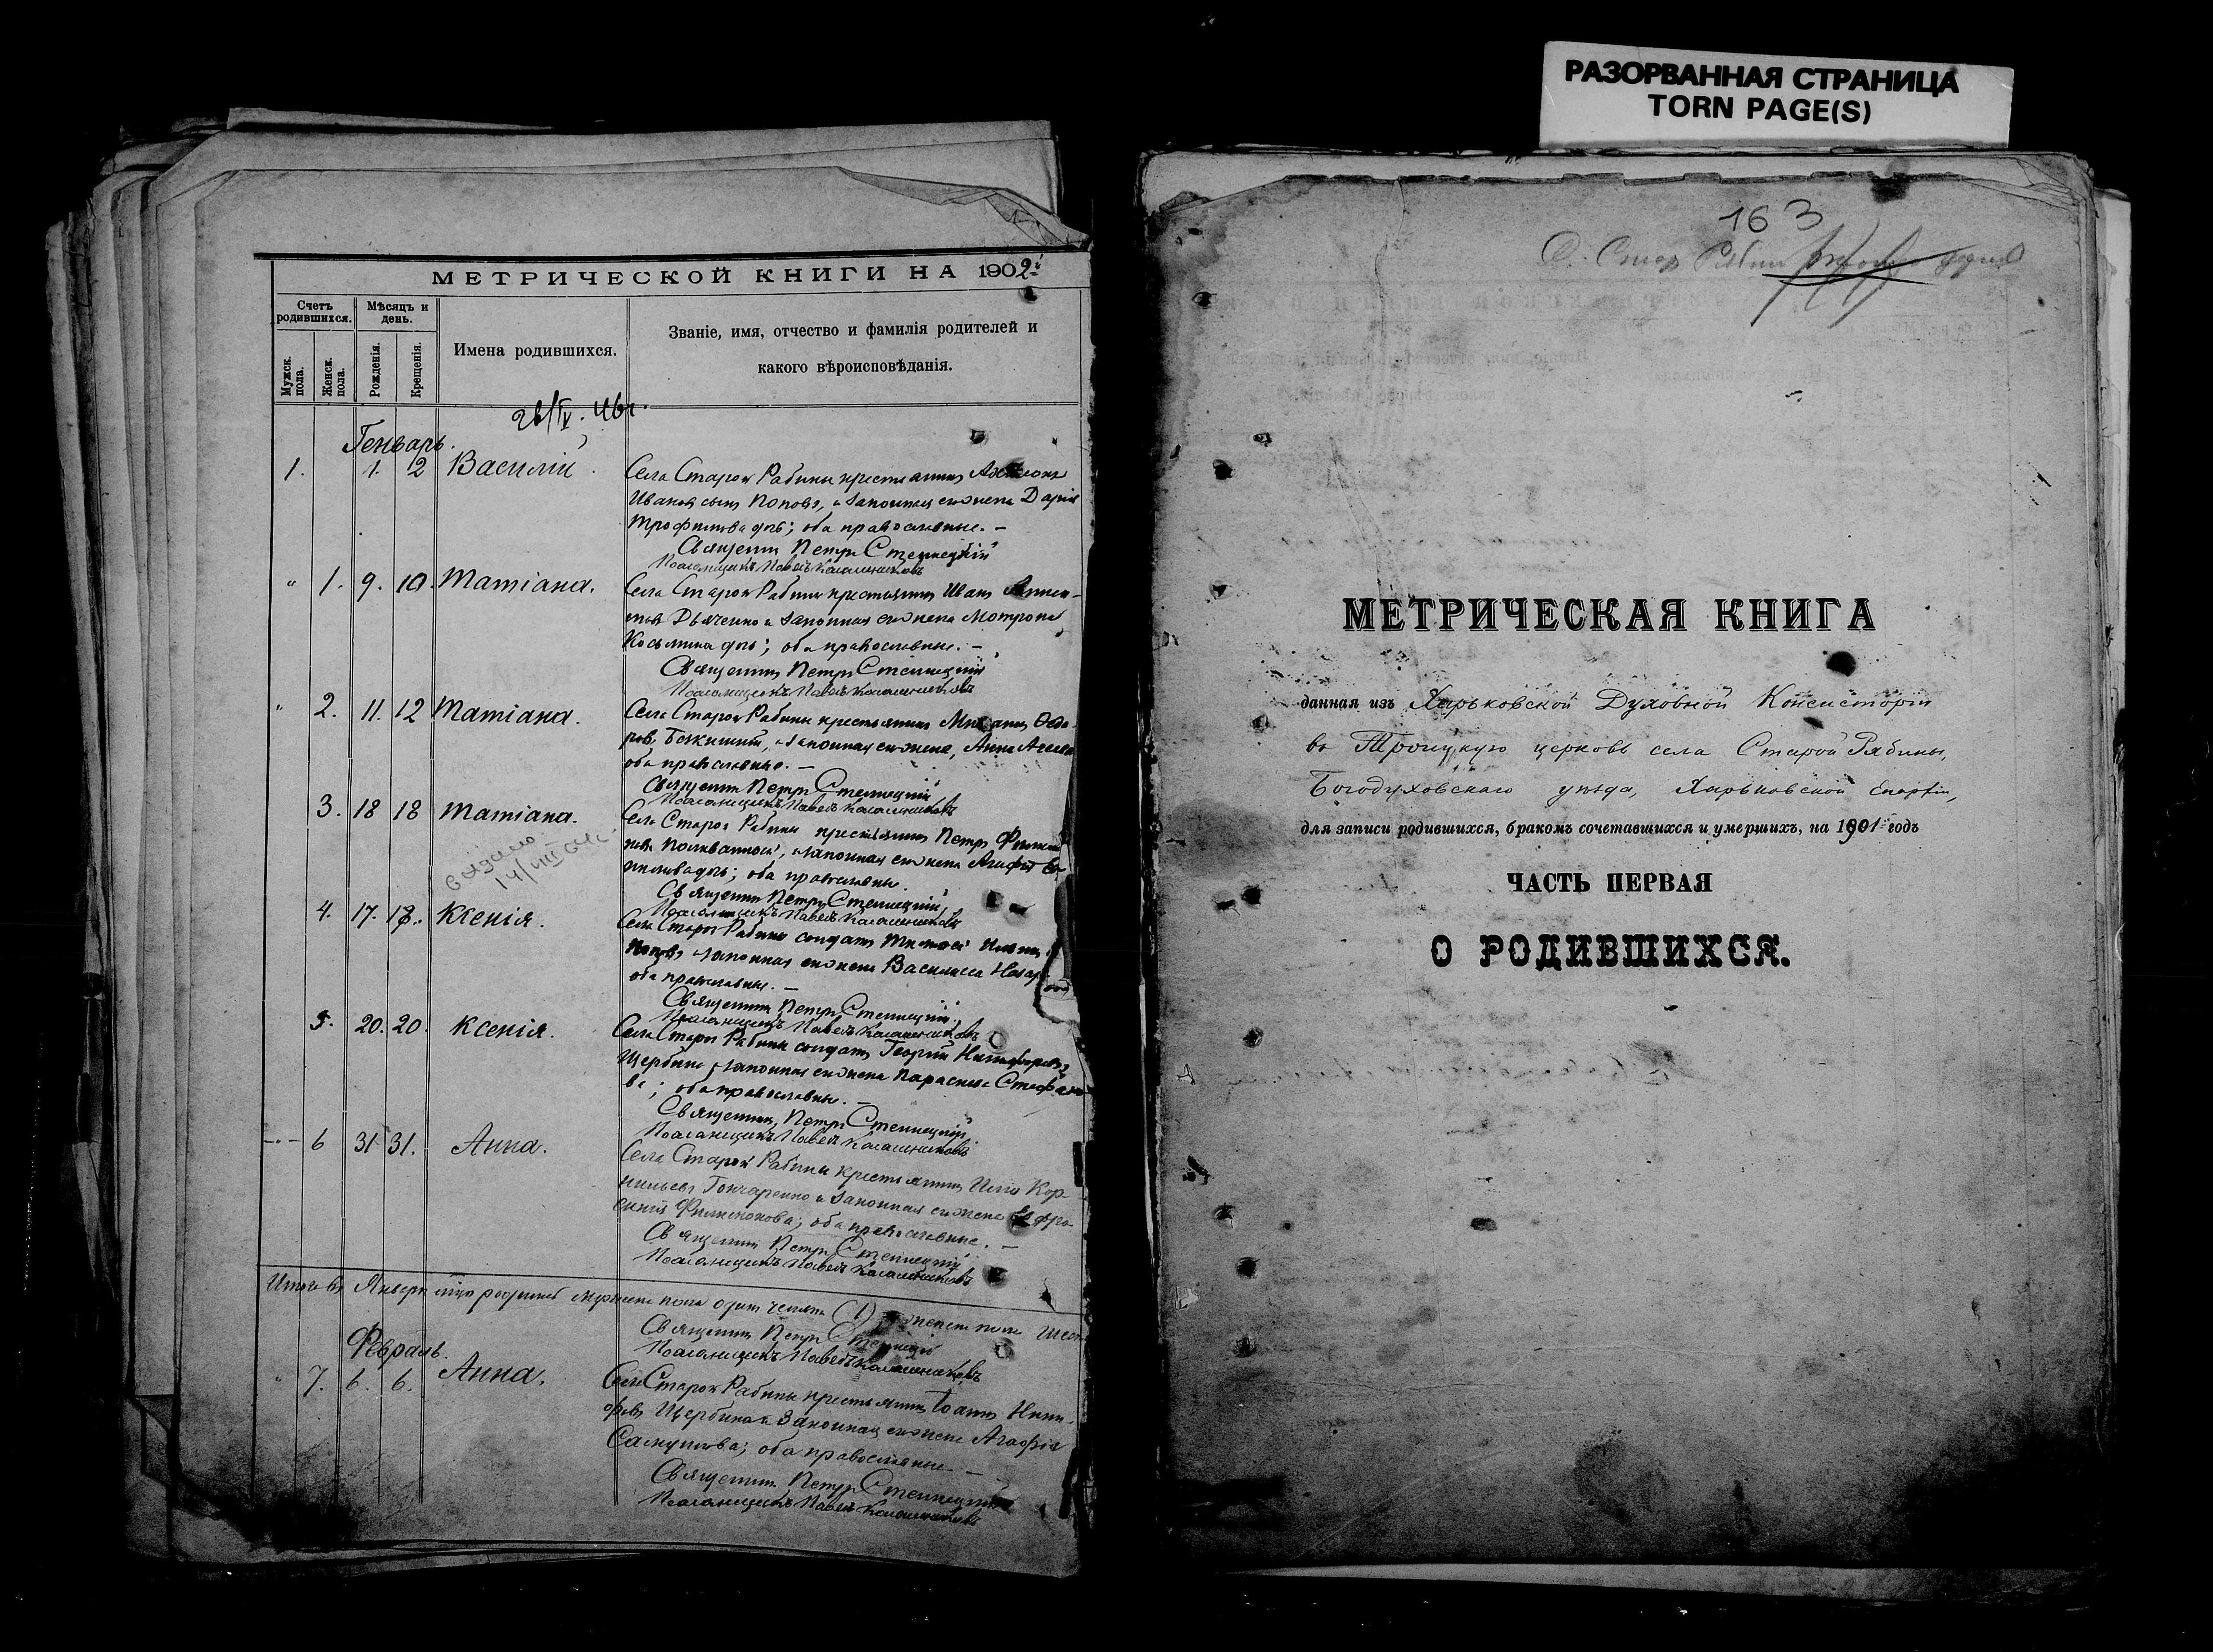 МЕТРИЧЕСКОЙ КНИГИ НА 1902й
Счетъ родившихся.
Мѣсяцъ и день.
Мужск. пола.
Женск. пола.
Рожденія.
Крещенія.
Имена родившихся.
Званіе, имя, отчество и фамилія родителей и
какого вѣроисповѣданія.
Генварь.
1. 1. 2 Василій. Села Старой Рабины крестьянинъ
Ивановъ сынъ Поповъ, и законная его жена Дарія
Трофимова дочь; оба православные. —
Священникъ Петръ Стеллецкій
Псаломщикъ Павелъ Калашниковъ
" 1. 9. 10. Татіана. Села Старой Рабины крестьянинъ Иванъ
Дьяченко и законная его жена Мотрона
Косьмина дочь; оба православные. —
Священникъ Петръ Стеллецкій
Псаломщикъ Павелъ Калашниковъ
" 2. 11. 12 Татіана. Села Старой Рабины крестьянинъ Ѳедо-
ровъ и законная его жена, Анна
оба православные. —
Священникъ Петръ Стеллецкій
Псаломщикъ Павелъ Калашниковъ
3. 18 18 Татіана. Села Старой Рабины крестьянинъ Петръ
и законная его жена
оба православные.
Священникъ Петръ Стеллецкій
Псаломщикъ Павелъ Калашниковъ
4. 17. 18. Ксенія. Села Старой Рабины солдатъ Тимофей
Поповъ и законная его жена Василиса
оба православные. —
Священникъ Петръ Стеллецкій
Псаломщикъ Павелъ Калашниковъ
5. 20. 20. Ксенія. Села Старой Рабины солдатъ Георгій Никифоровъ
Щербина и законная его жена Параскева Стефано
ва; оба православные. —
Священникъ Петръ Стеллецкій
Псаломщикъ Павелъ Калашниковъ
6 31 31. Анна. Села Старой Рабины крестьянинъ Илія Кор-
нильевъ Гончаренко и законная его жена Евфро-
синія Филимонова; оба православные. —
Священникъ Петръ Стеллецкій
Псаломщикъ Павелъ Калашниковъ
Итого въ Январѣ м-цѣ родилось мужеска пола одинъ (1) женска пола
Священникъ Петръ Стеллецкій
Псаломщикъ Павелъ Калашниковъ
Февраль.
" 7. 6. 6. Анна. Села Старой Рабины крестьянинъ Іоаннъ
Щербина и законная его жена Агафія
Самуилова; оба православные —
Священникъ Петръ Стеллецкій
Псаломщикъ Павелъ Калашниковъ
РАЗОРВАННАЯ СТРАНИЦА
TORN PAGE(S)
163
МЕТРИЧЕСКАЯ КНИГА
данная изъ Харьковской Духовной Консисторіи
въ Троицкую церковь села Старой Рябины,
Богодуховскаго уѣзда, Харьковской Епархіи,
для записи родившихся, бракомъ сочетавшихся и умершихъ, на 1901 годъ
ЧАСТЬ ПЕРВАЯ
О РОДИВШИХСЯ.